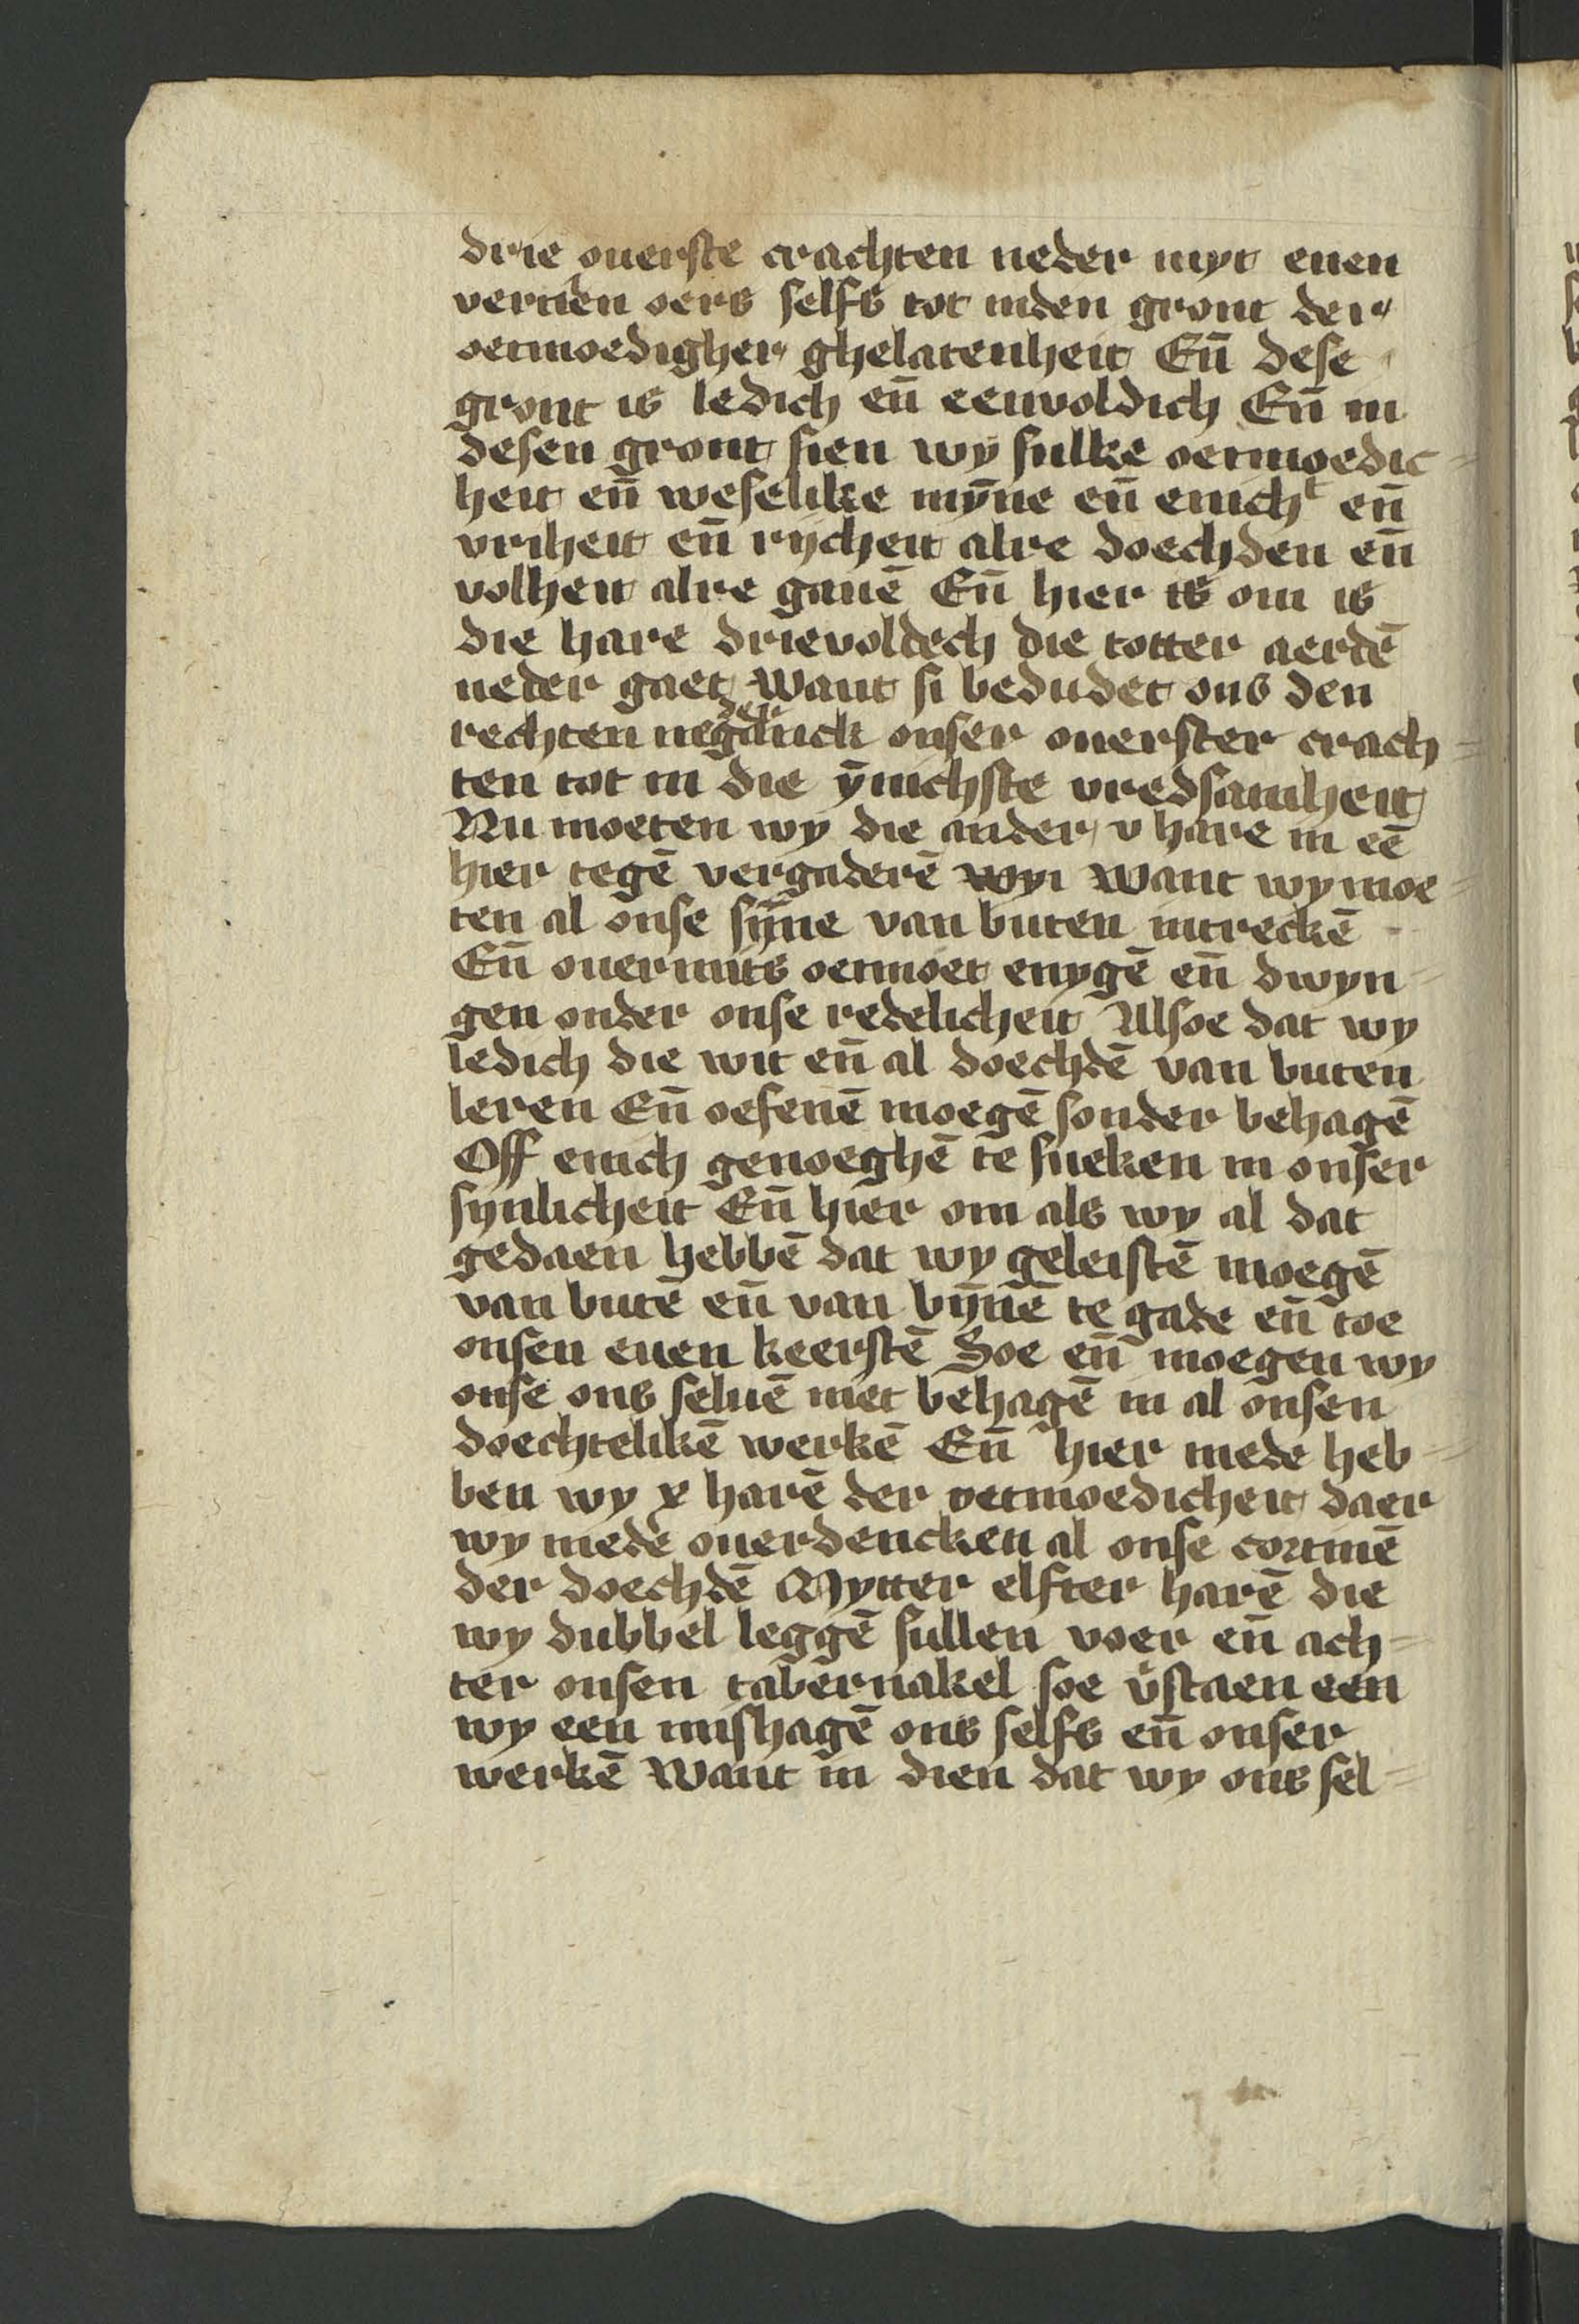 drie ouerste crachten neder myt enen
vertien oers selfs tot inden gront der
oetmoedigher ghelatenheit Eñ dese
gront is ledich eñ eenvoldich Eñ in
desen gront sien wy sulke oetmoedic
heit eñ weselike mȳne eñ enichᵗ eñ
vriheit eñ rijcheit alre doechden eñ
volheit alre gauē Eñ hier is om is
die hare drievoldech die totter aerdē
neder gaet want si bedudet ons den
rechten negdruck onser ouerster crach
ten tot in die ȳnichste vredsamheit
Nu moeten wy die ander v hare in eē
hier tegē vergaderē wyi want wy moe
ten al onse sȳne van buten intreckē
Eñ ouermits oetmoet enygē eñ dwyn
gen onder onse redelicheit Alsoe dat wy
ledich die wit eñ al doechdē van buten
leren Eñ oefenē moegē sonder behagē
Off enich genoeghē te sueken in onser
synlicheit Eñ hier om als wy al dat
gedaen hebbē dat wy geleistē moegē
van butē eñ van bȳnē te gade eñ toe
onsen euen keerstē Soe eñ moegen wy
onse ons seluē niet behagē in al onsen
doechtelikē werkē Eñ hier mede heb
ben wy x harē der oetmoedicheit daer
wy mede ouerdencken al onse cortinē
der doechdē Mytter elfter harē die
wy dubbel leggē sullen voer eñ ach
ter onsen tabernakel soe v̓staen een
wy een mishagē ons selfs eñ onser
werkē Want in dien dat wy ons sel